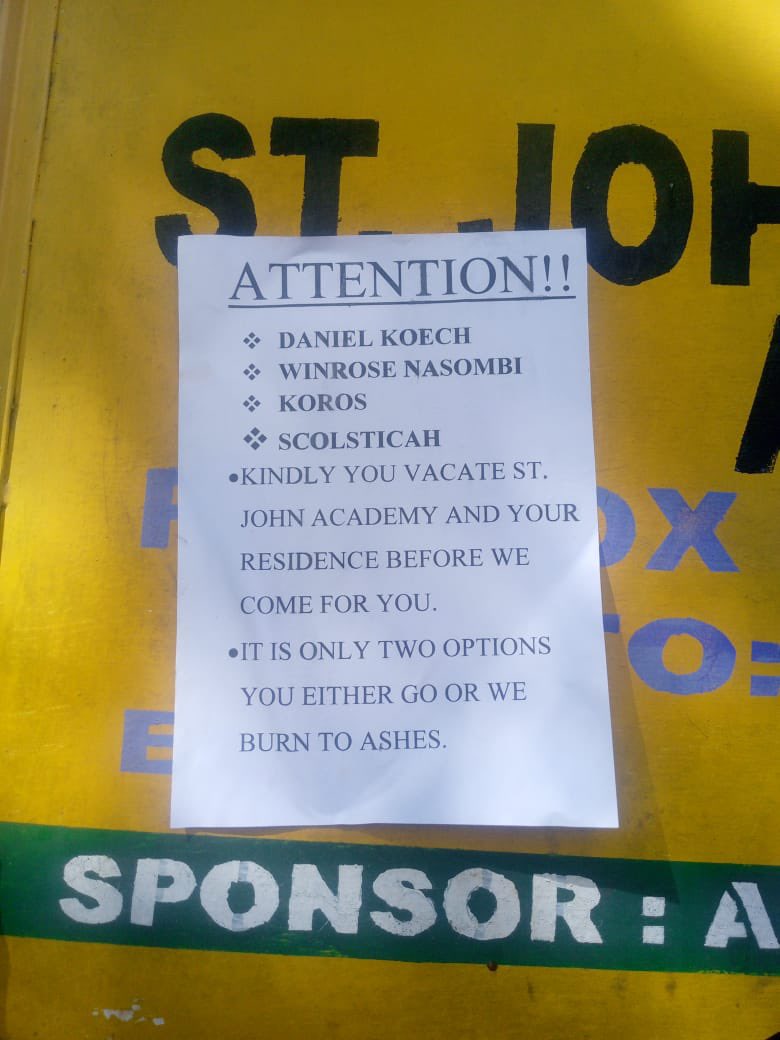 ST. JOH
ATTENTION!!
❖ DANIEL KOECH
❖ WINROSE NASOMBI
❖ KOROS
❖ SCOLSTICAH
•KINDLY YOU VACATE ST.
JOHN ACADEMY AND YOUR
RESIDENCE BEFORE WE
COME FOR YOU.
•IT IS ONLY TWO OPTIONS
YOU EITHER GO OR WE
BURN TO ASHES.
OX
TO:
SPONSOR : A